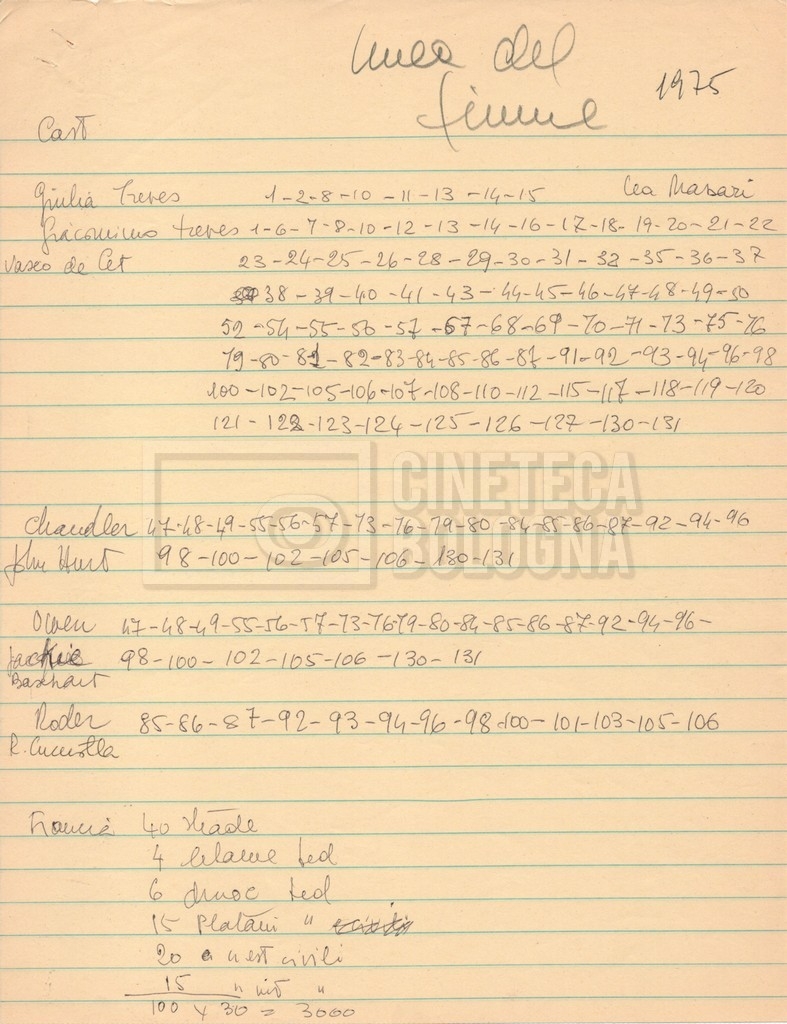 Linea del
fiume 1975
Cast
Giulia Treves 1-2-8-10-11-13-14-15 Lea Masari
Giacomino treves 1-6-7-8-10-12-13-14-16-17-18-19-20-21-22
Vasco de Cet 23-24-25-26-28-29-30-31-32-35-36-37
38-39-40-41-43-44-45-46-47-48-49-50
52-54-55-56-57-67-68-69-70-71-73-75-76
79-80-81-82-83-84-85-86-87-91-92-93-94-96-98
100-102-105-106-107-108-110-112-115-117-118-119-120
121-122-123-124-125-126-127-130-131
CINETECA
BOLOGNA
Chandler 47-48-49-55-56-57-73-76-79-80-84-85-86-87-92-94-96
John Hurt 98-100-102-105-106-130-131
Owen 47-48-49-55-56-57-73-76-79-80-84-85-86-87-92-94-96-
Jackie 98-100-102-105-106-130-131
Basehart
Roder 85-86-87-92-93-94-96-98-100-101-103-105-106
R. Cucciolla
Francia 40
4 ted
6 ted
15 "
20 civili
15 " "
100 x 30 = 3000